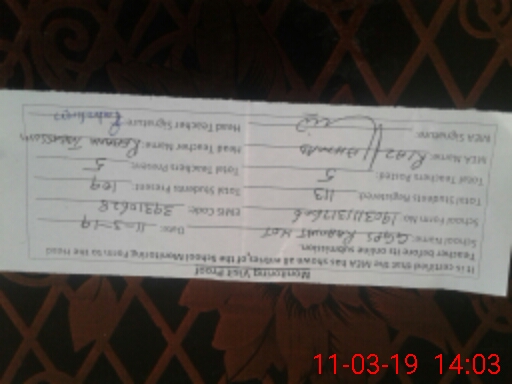 Monitoring Visit Proof
It is certified that the MEA has shown all entries, of the School Monitoring Form to the Head
Teacher before its online submission.
School Name: GGPS Date: 11-3-19
School Form No: EMIS Code: 39310628
Total Students Registered: 113 Total Students Present: 109
Total Teachers Posted: 5 Total Teachers Present: 5
MEA Name: Riaz Head Teacher Name:
MEA Signature: Head Teacher Signature:
11-03-19 14:03